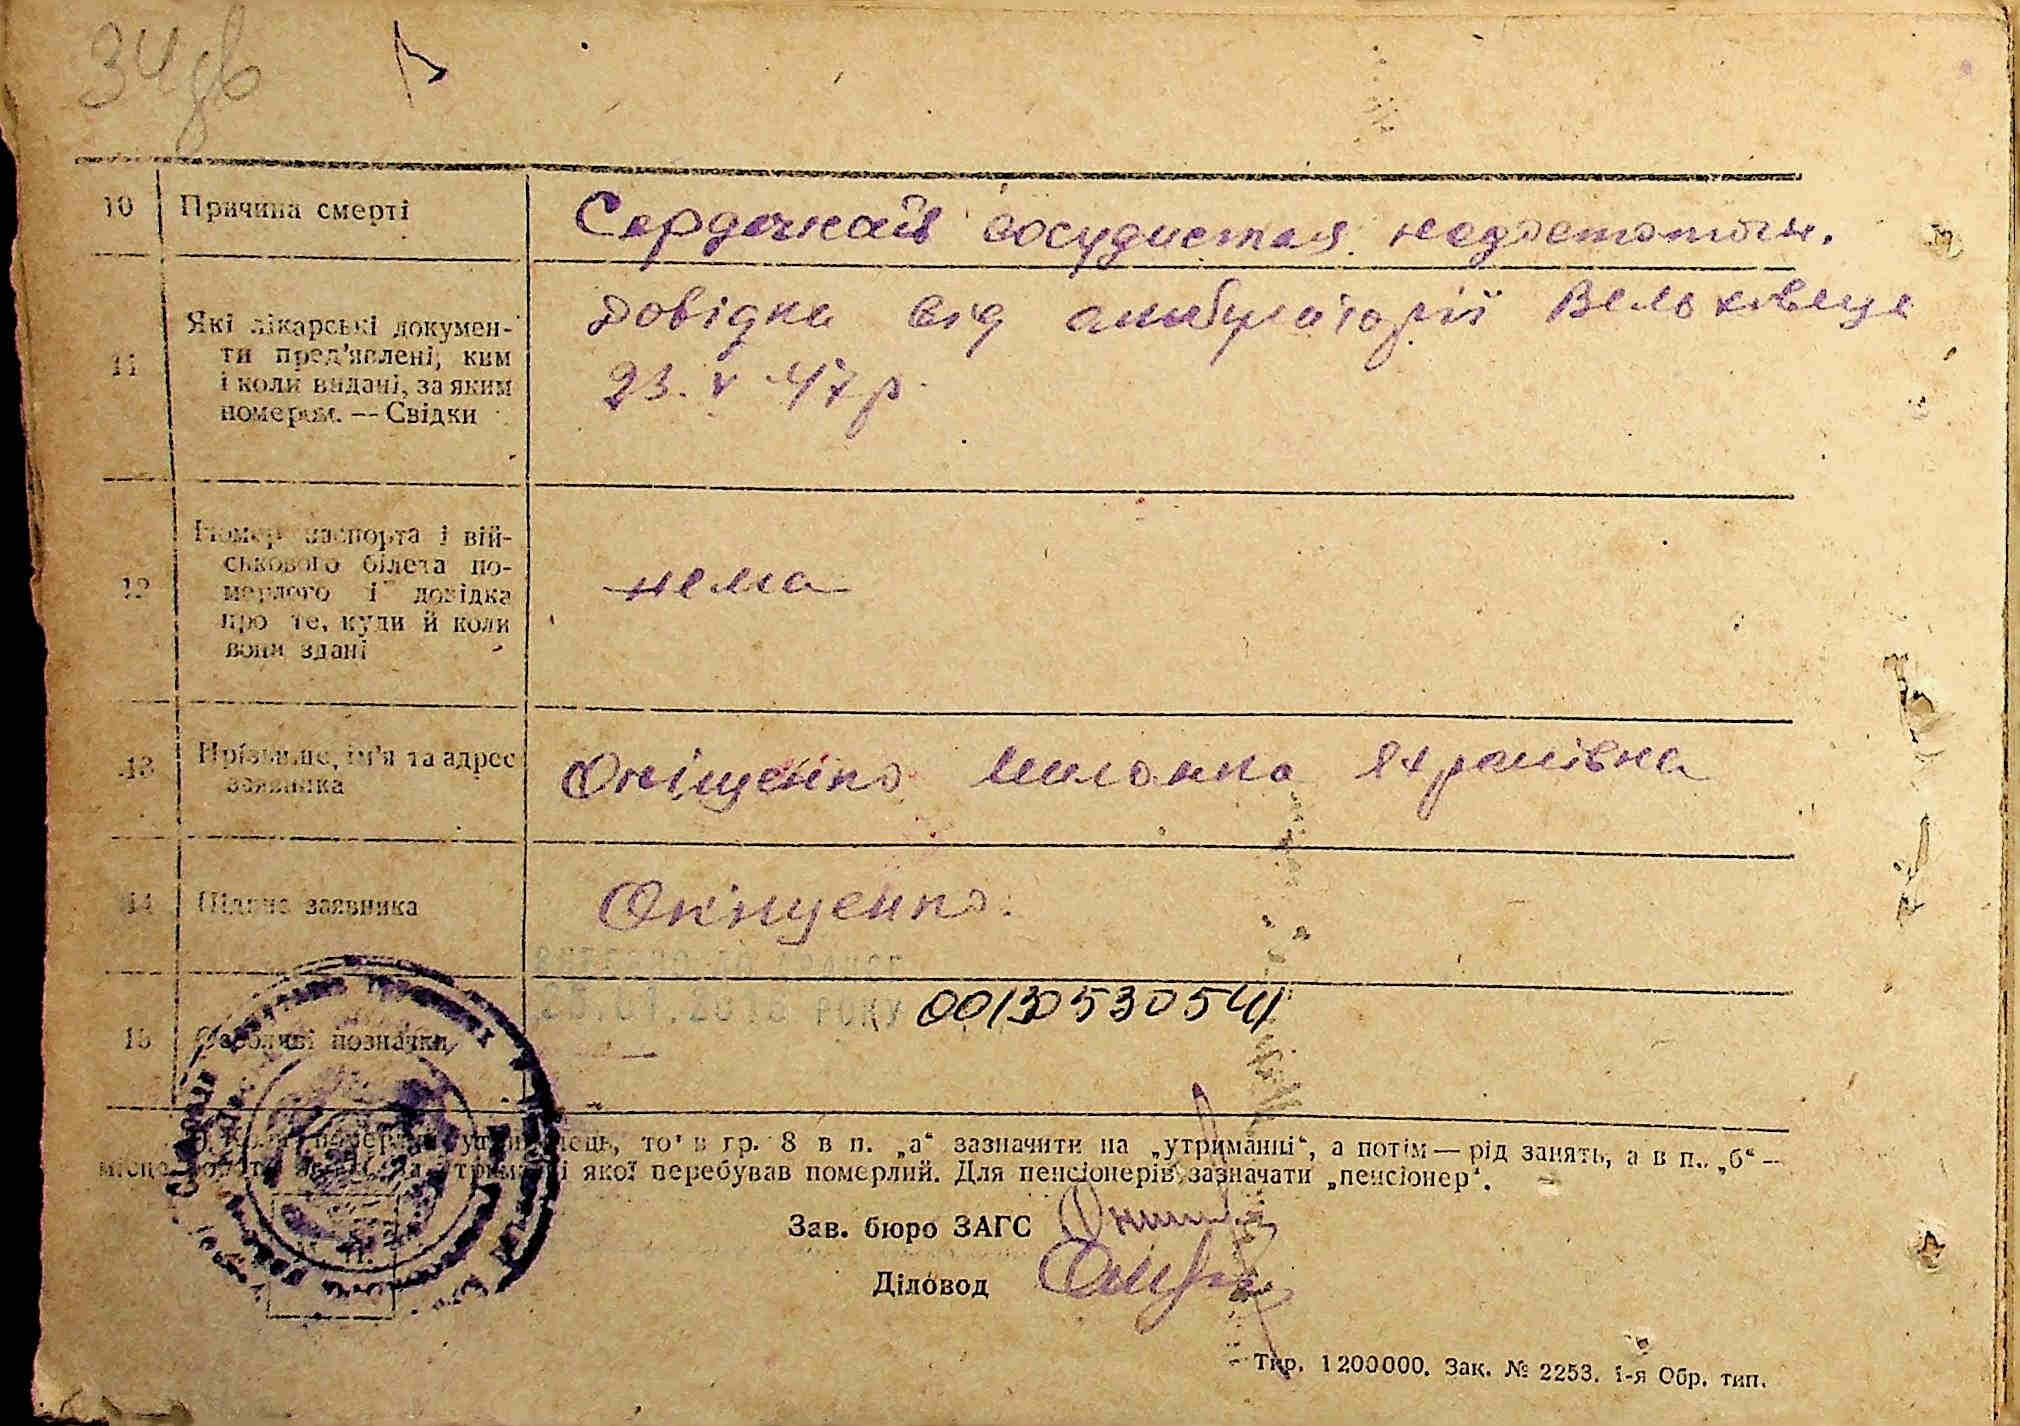 34 зв
10 Причина смерті Сердечная сосудистая недостаточн.
11 Які лікарські докумен-
ти пред'явлені, ким
і коли видані, за яким
номером. — Свідки
Довідка від амбулаторії
23. V 47 р.
12 Номер паспорта і вій-
ськового білета по-
мерлого і довідка
про те, куди й коли
вони здані
нема
13 Прізвище, ім'я та адрес
заявника
Оніщенко Миланка
14 Підпис заявника Онищенко.
РОКУ 00130530541
15 Особливі позначки —
то в гр. 8 в п. „а“ зазначити на „утриманні“, а потім — рід занять, а в п. „б“ —
якої перебував померлий. Для пенсіонерів зазначати „пенсіонер“.
Зав. бюро ЗАГС
Діловод
Тир. 1200000. Зак. № 2253. 1-я Обр. тип.